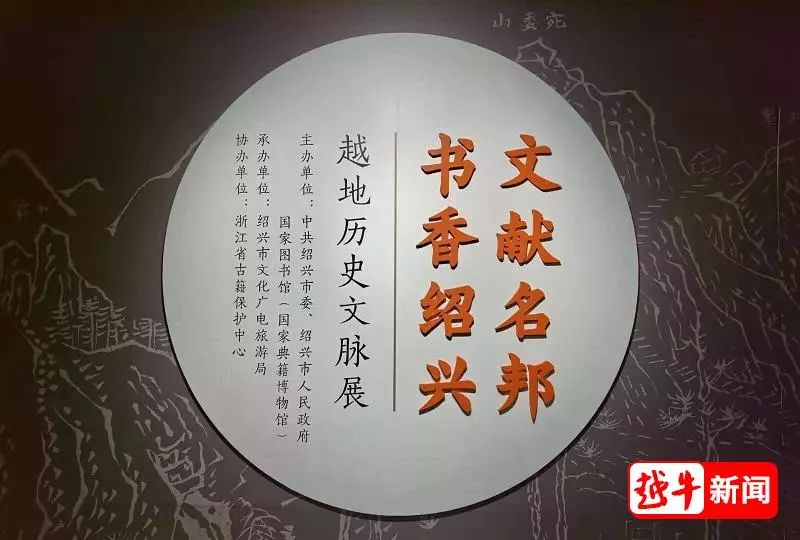 文献名邦
书香绍兴
越地历史文脉展
主办单位：中共绍兴市委、绍兴市人民政府
国家图书馆（国家典籍博物馆）
承办单位：绍兴市文化广电旅游局
协办单位：浙江省古籍保护中心
宛委山
越牛新闻